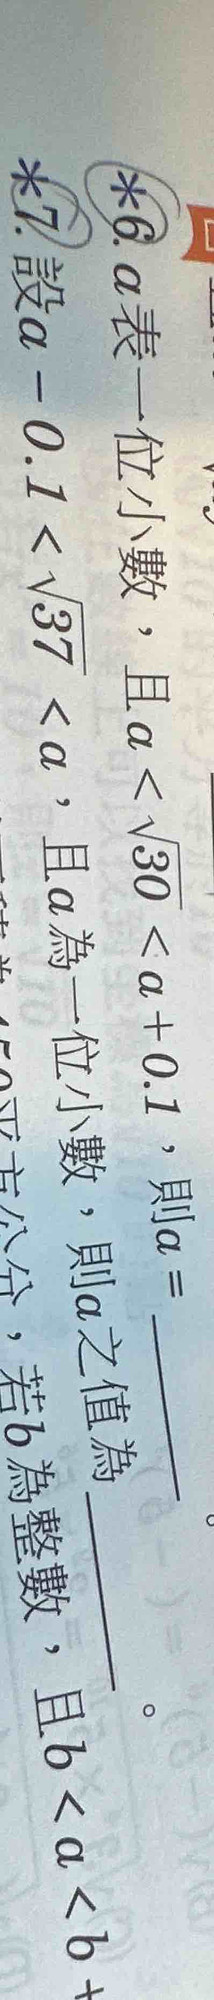 *6. a表一位小數，且a<√30<a+0.1，則a=______。
*7. 設a-0.1<√37<a，且a為一位小數，則a之值為______。
平方公分，若b為整數，且b<a<b+